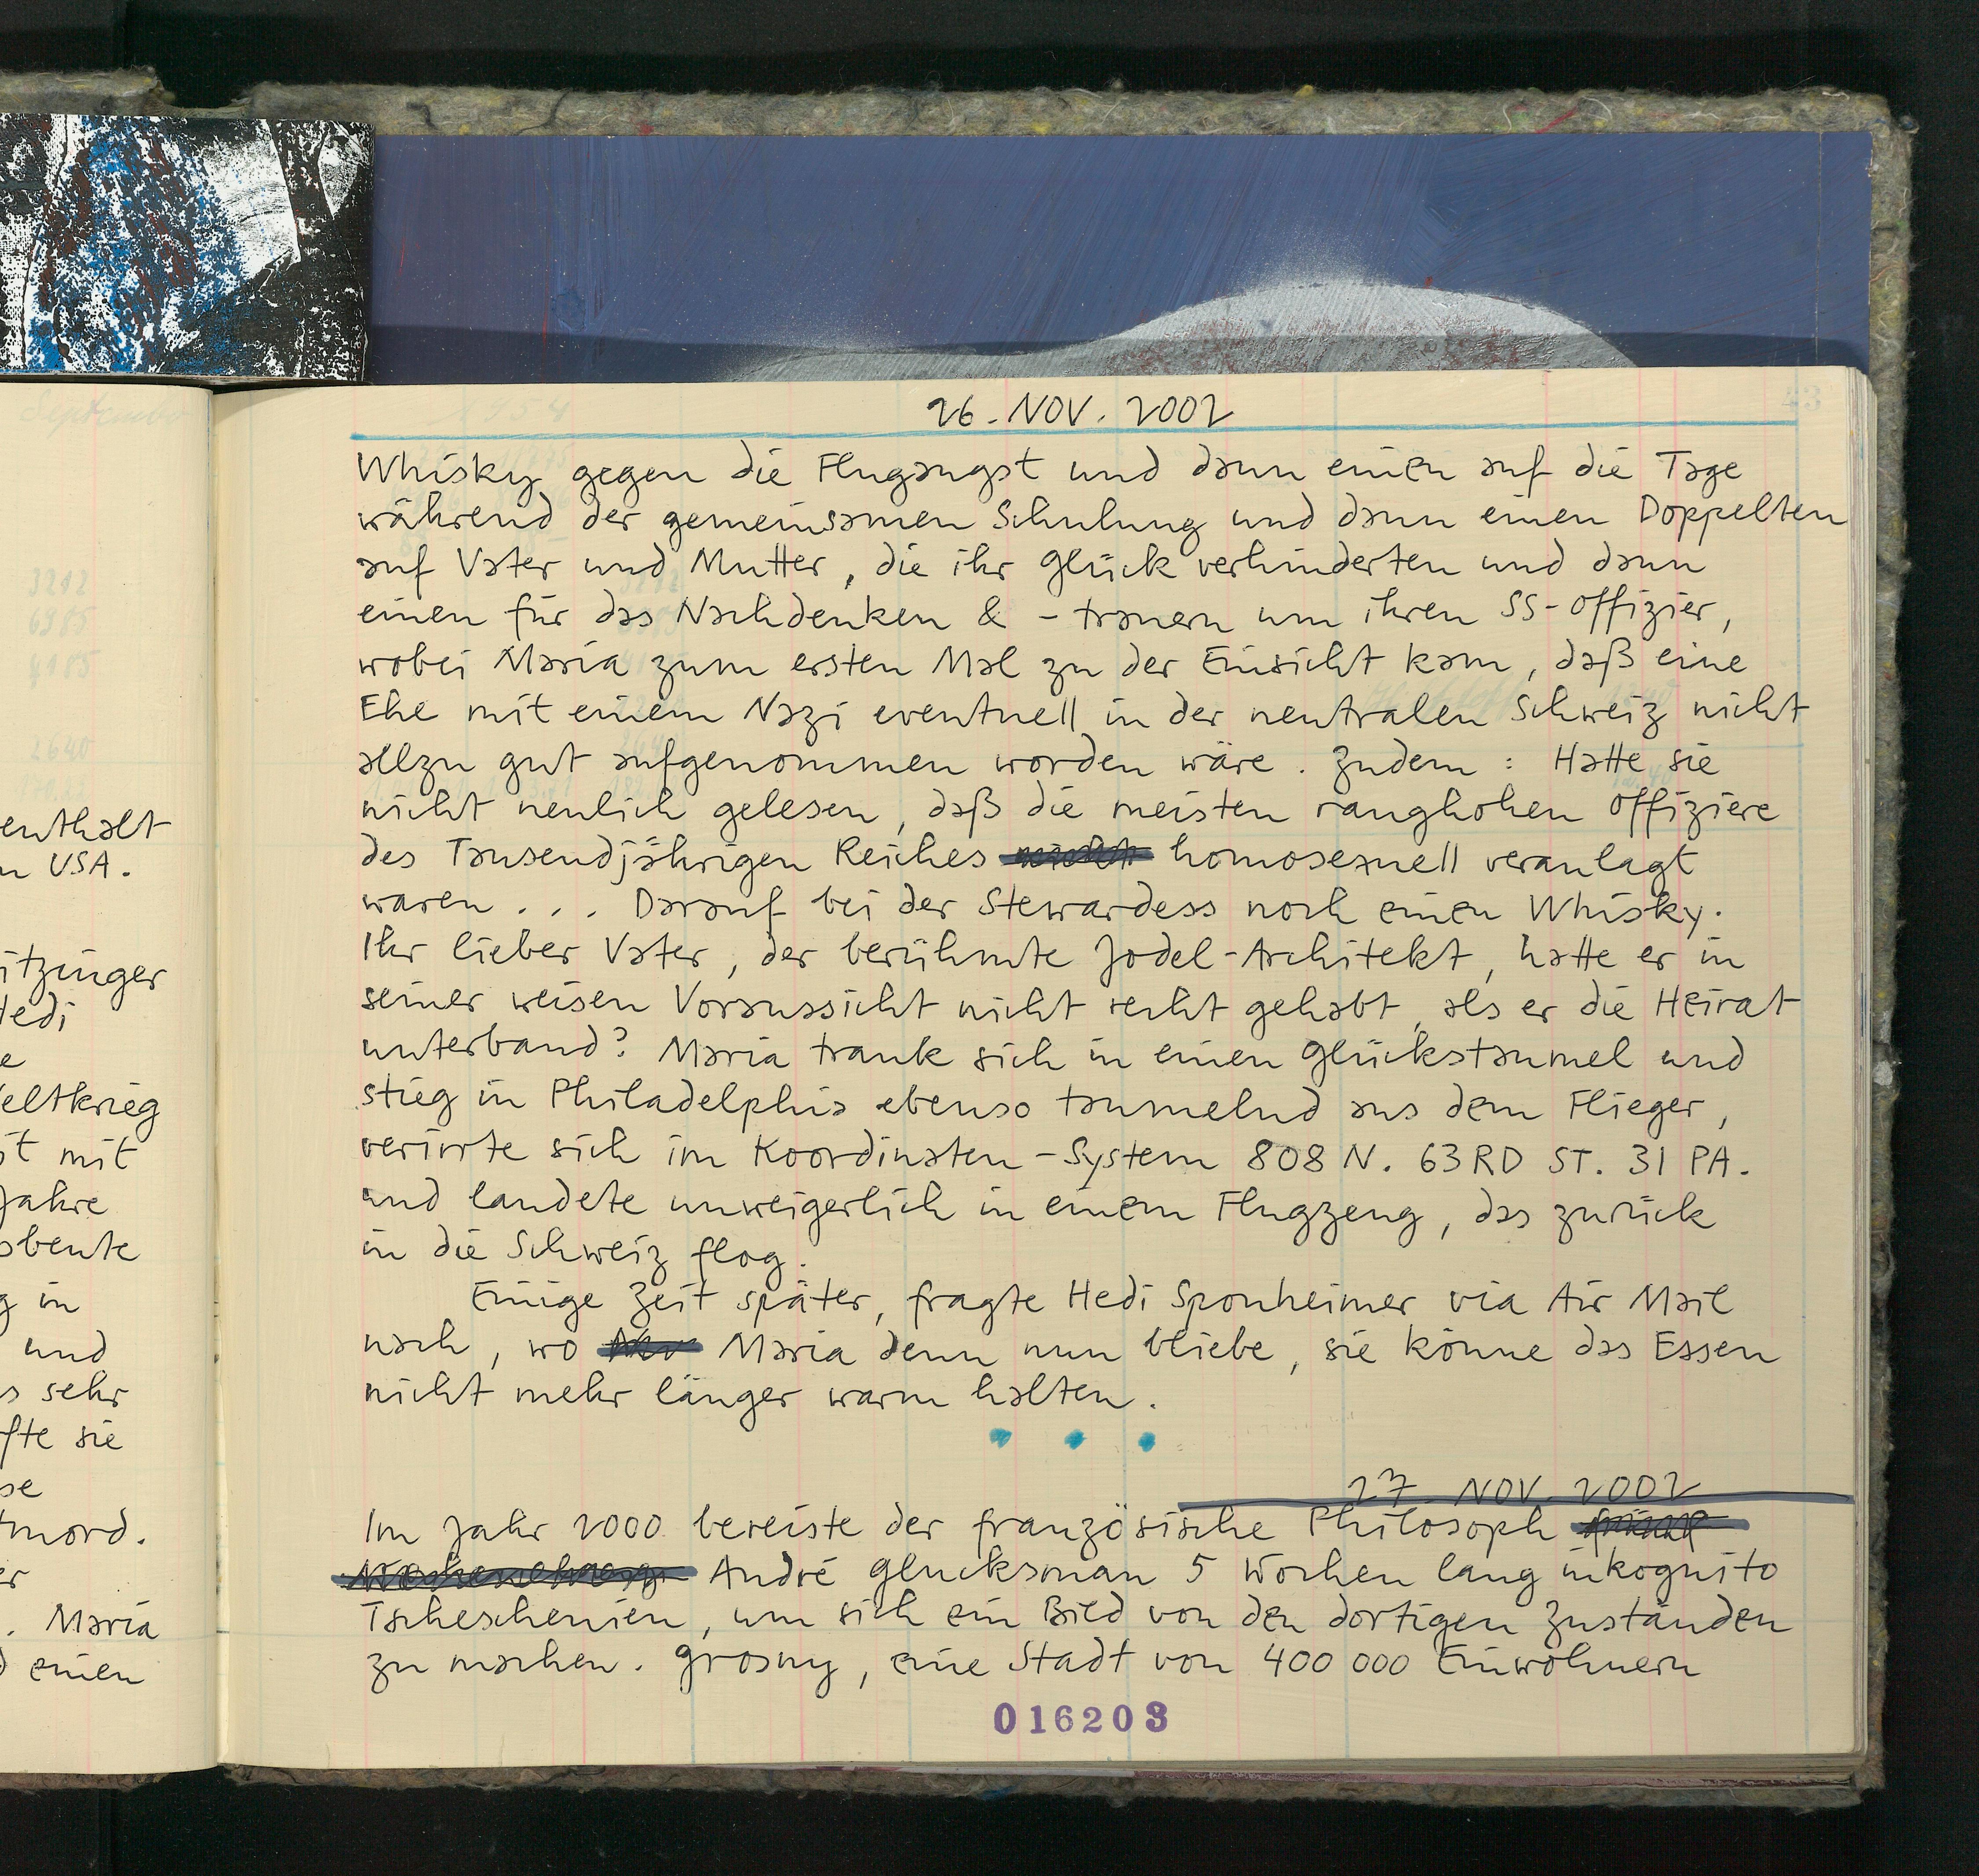 enthalt
n USA.
itzinger
Hedi
e
eltkrieg
it mit
Jahre
sbeute
g in
und
s sehr
fte sie
se
tmord.
er
. Maria
d einen
26. NOV. 2002
Whisky gegen die Flugangst und dann einen auf die Tage
während der gemeinsamen Schulung und dann einen Doppelten
auf Vater und Mutter, die ihr Glück verhinderten und dann
einen für das Nachdenken & -trauern um ihren SS-Offizier,
wobei Maria zum ersten Mal zu der Einsicht kam, daß eine
Ehe mit einem Nazi eventuell in der neutralen Schweiz nicht
allzu gut aufgenommen worden wäre. Zudem: Hatte sie
nicht neulich gelesen, daß die meisten ranghohen Offiziere
des Tausendjährigen Reiches homosexuell veranlagt
waren... Darauf bei der Stewardess noch einen Whisky.
Ihr lieber Vater, der berühmte Jodel-Architekt, hatte er in
seiner weisen Voraussicht nicht recht gehabt, als er die Heirat
unterband? Maria trank sich in einen Glückstaumel und
stieg in Philadelphia ebenso taumelnd aus dem Flieger,
verirrte sich im Koordinaten-System 808 N. 63RD ST. 31 PA.
und landete unweigerlich in einem Flugzeug, das zurück
in die Schweiz flog.
Einige Zeit später, fragte Hedi Sponheimer via Air Mail
nach, wo Maria denn nun bliebe, sie könne das Essen
nicht mehr länger warm halten.
27. NOV. 2002
Im Jahr 2000 bereiste der französische Philosoph
André Glucksman 5 Wochen lang inkognito
Tschetschenien, um sich ein Bild von den dortigen Zuständen
zu machen. Grosny, eine Stadt von 400 000 Einwohnern
016203